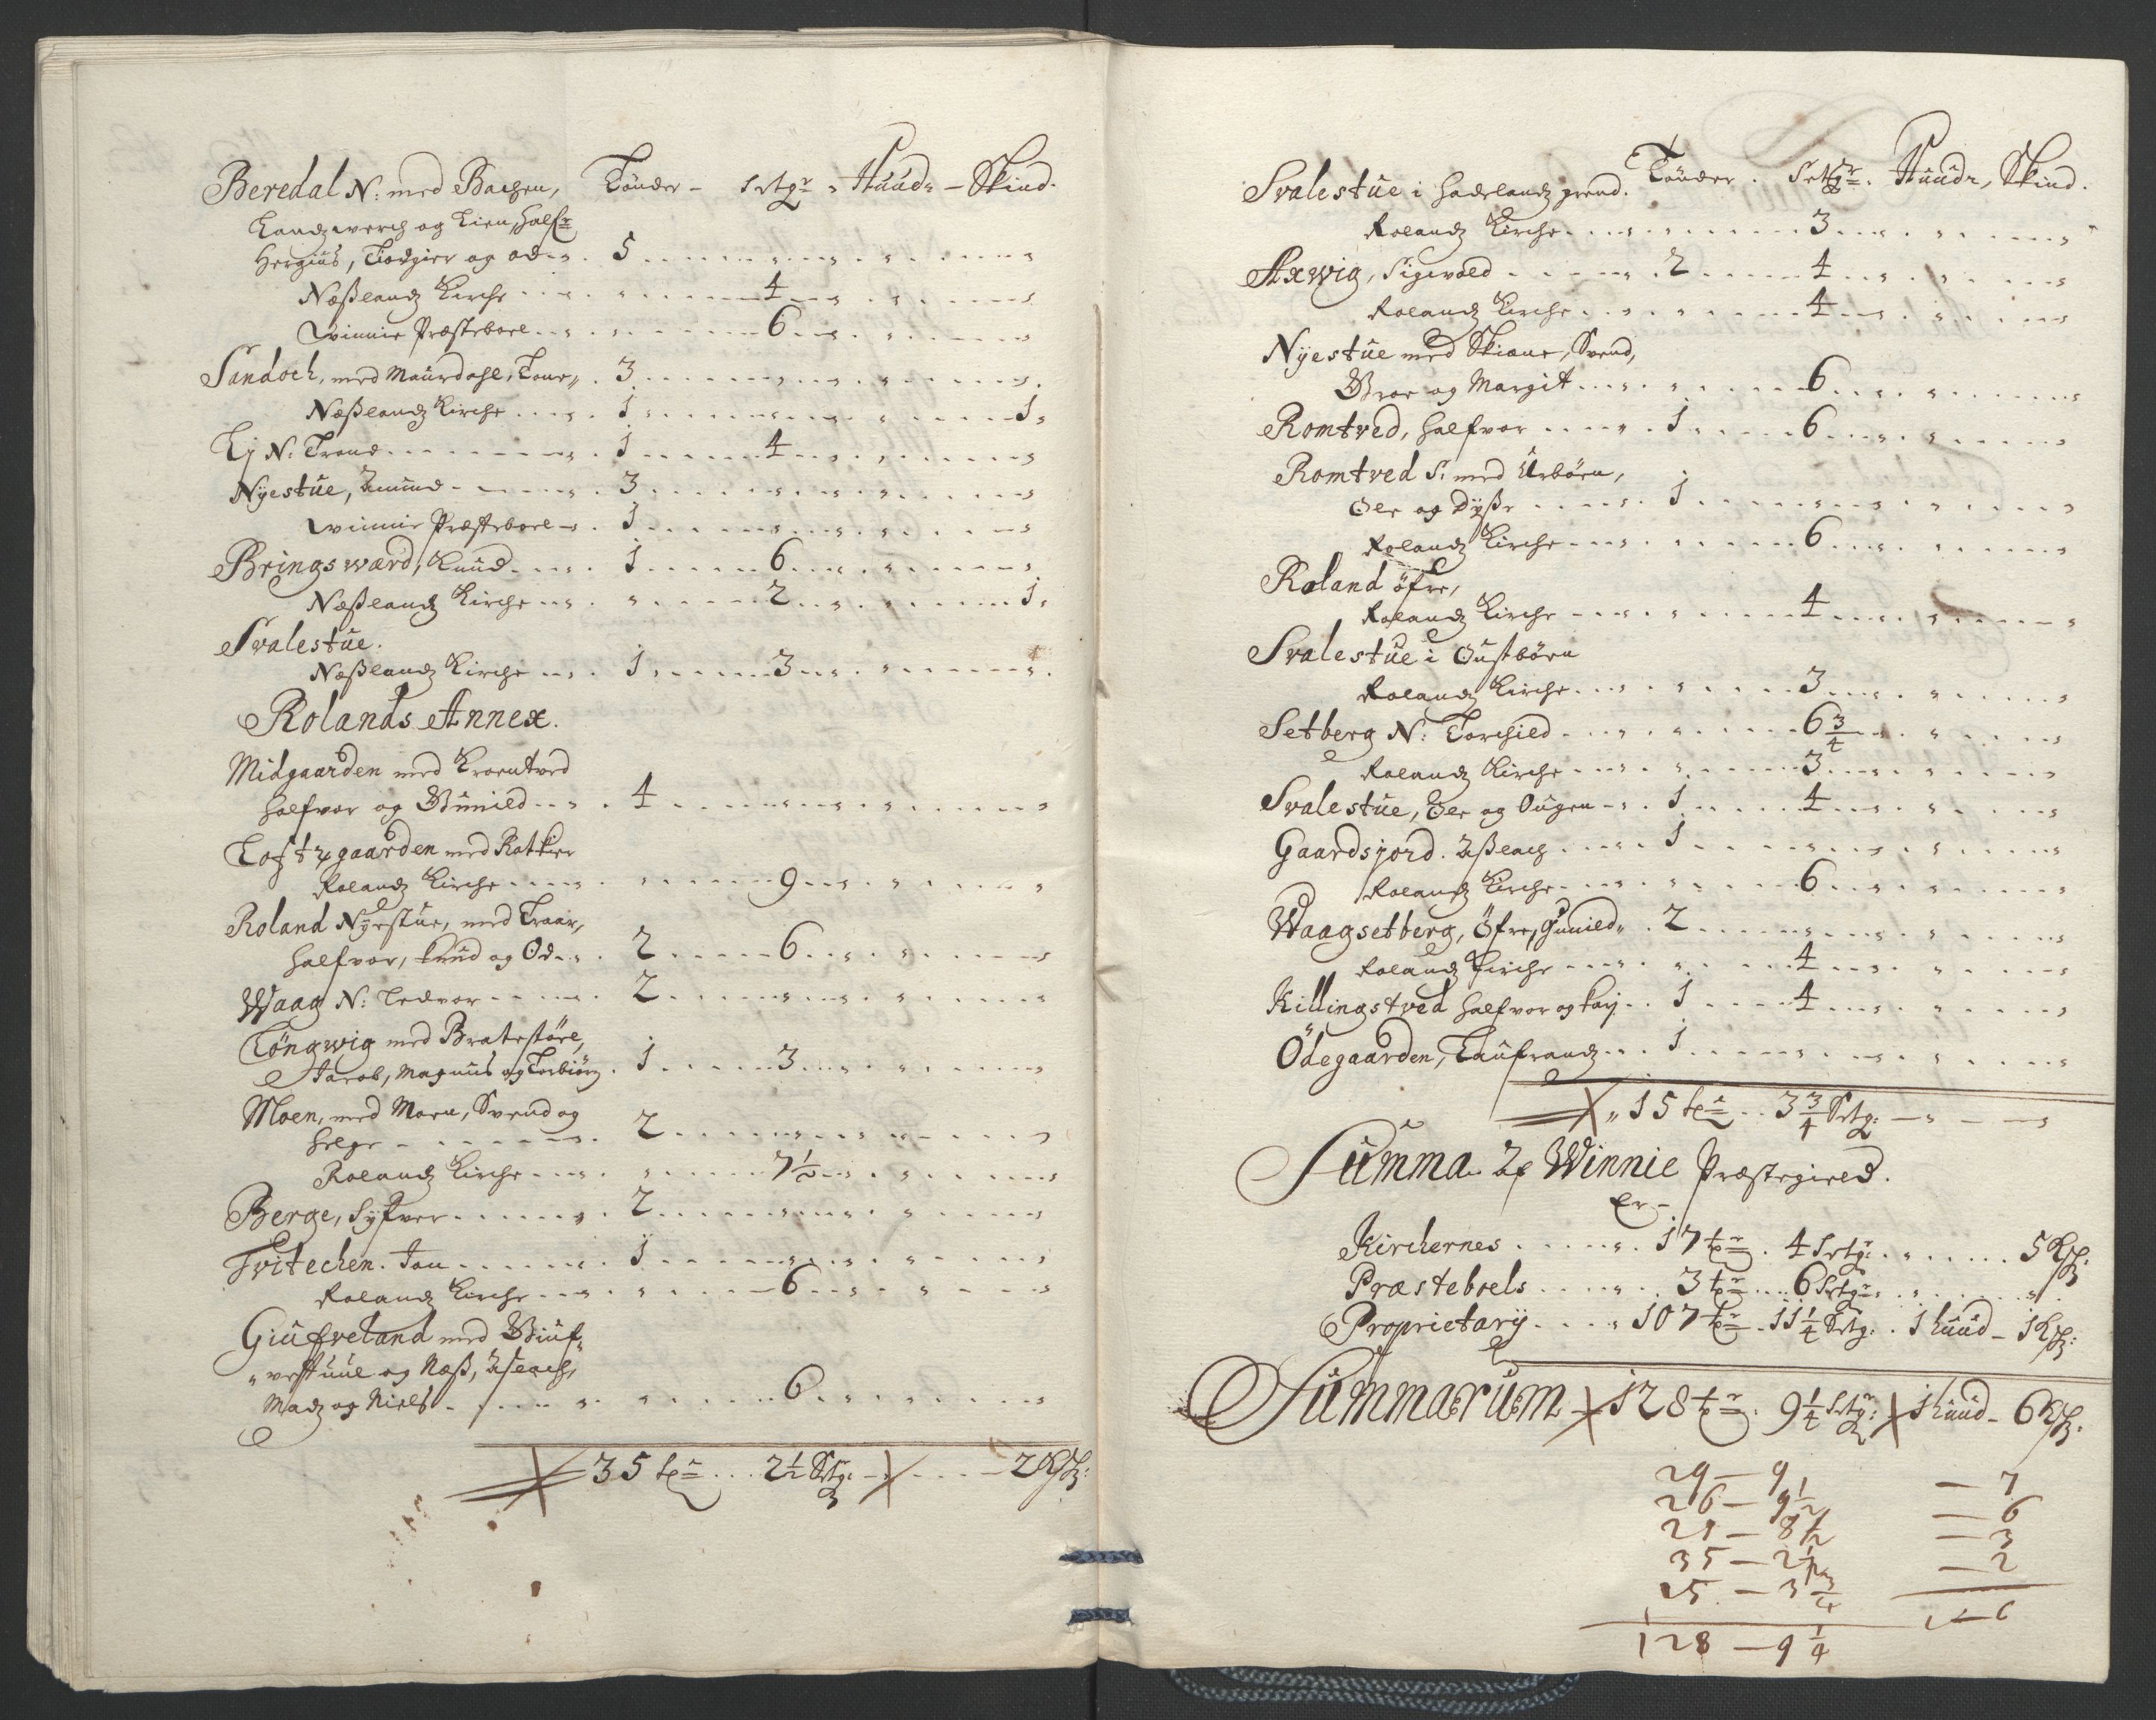 Beredal N: med Bachen, Tönder - Setgr „ Huud„ - Skind.
Landzwerch og Lien, Half:
Hergius, Todgier og od . 5
Næßlandz Kirche 4
Winnie Præsteboel 6
Sandoch, med Maurdahl, Tone „ 3
Næßlandz Kirche 1 1„
Lj N: Trond 1 4
Nyestue, Amund 3
Winnie Præsteboel 1
Bringswærd, Knud 1 6
Næßlandz Kirche 2 1„
Svalestue.
Næßlandz Kirche 1 3
Rolands Annex.
Midgaarden med Kroentved
Halfvor og Gunild 4
Loftzgaarden med Ratkier
Rolandz Kirche 9
Roland Nyestue, med Traar,
Halfvor, Knud og Od 2 6
Waag N: Ledvor 2
Töngwig med Bratestöel,
Jacob, Magnus og Torbiörg 1 3
Moen, med Moen, Svend og
Helge 2
Rolandz Kirche 7½
Berge, Syfver 2
Tvitechen. Jon 1
Rolandz Kirche 6
Giufveland med Giuf„
„vestuul og Næß, Aslach,
Madz og Niels 6
35 tr 2½ Setg: 2 Ksk:
Svalestue i Hadelandz grend. Tönder . Setgr . Huudr, Skind.
Rolandz Kirche 3
Axwig, Sigvold 2 4
Rolandz Kirche 4
Nyestue med Skiaue, Svend,
Broe og Margit 6
Romtved, Halfvor 1 6
Romtved S: med Urböen,
Ole og Dyße 1
Rolandz Kirche 6
Roland öfre,
Rolandz Kirche 4
Svalestue i Oustböen
Rolandz Kirche 3
Setberg N: Torchild 6¾
Rolandz Kirche 3
Svalestue, Ole og Ougen 1 4
Gaardsjord. Aßlach 1
Rolandz Kirche 6
Waagsetberg, Öfre, Gunild„ 2
Rolandz Kirche 4
Killingstved Halfvor og Karj 1 4
Ödegaarden, Taufrandz 1
„15 tr 3¾ Setg:
Summa Af Winnie Præstegield.
Er -
Kirchernes 17 tr 4 Setgr 5 Ksk:
Præsteboels 3 tr 6 Setgr
Proprietarij 107 tr 11¼ Setg: 1 huud - 1 Ksk:
Summarum 128 tr 9¼ Setgr: 1 huud - 6 Ksk:
29 - 9 - 7
26 - 9½ - 6
21 - 8½ - 3
35 - 2½ - 2
15 - 3¾
1 - 6
128 - 9¼